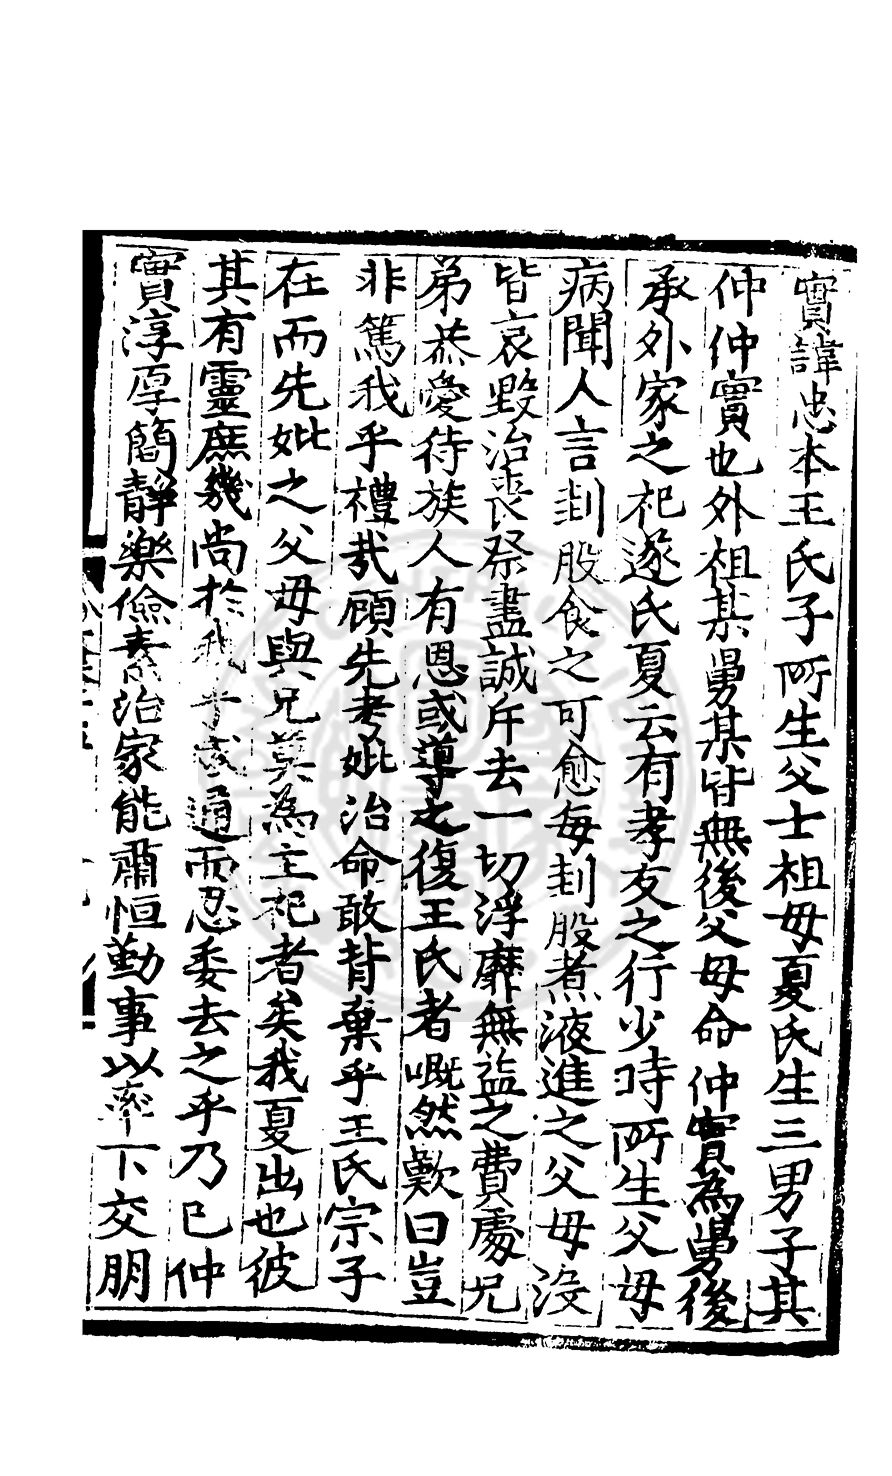 實諱忠本王氏子所生父士祖母夏氏生三男子其
仲仲實也外祖某舅某皆無後父母命仲實為舅後
承外家之祀遂氏夏云有孝友之行少時所生父母
病聞人言刲股食之可愈每刲股煮液進之父母沒
皆哀毀治喪祭盡誠斥去一切浮靡無益之費處兄
弟恭愛待族人有恩或導之復王氏者嘅然歎曰豈
非篤我乎禮哉顧先考妣治命敢背棄乎王氏宗子
在而先妣之父母與兄莫為主祀者矣我夏出也彼
其有靈庶幾尚於我乎感通而忍委去之乎乃已仲
實淳厚簡靜樂儉素治家能肅恒勤事以率下交朋